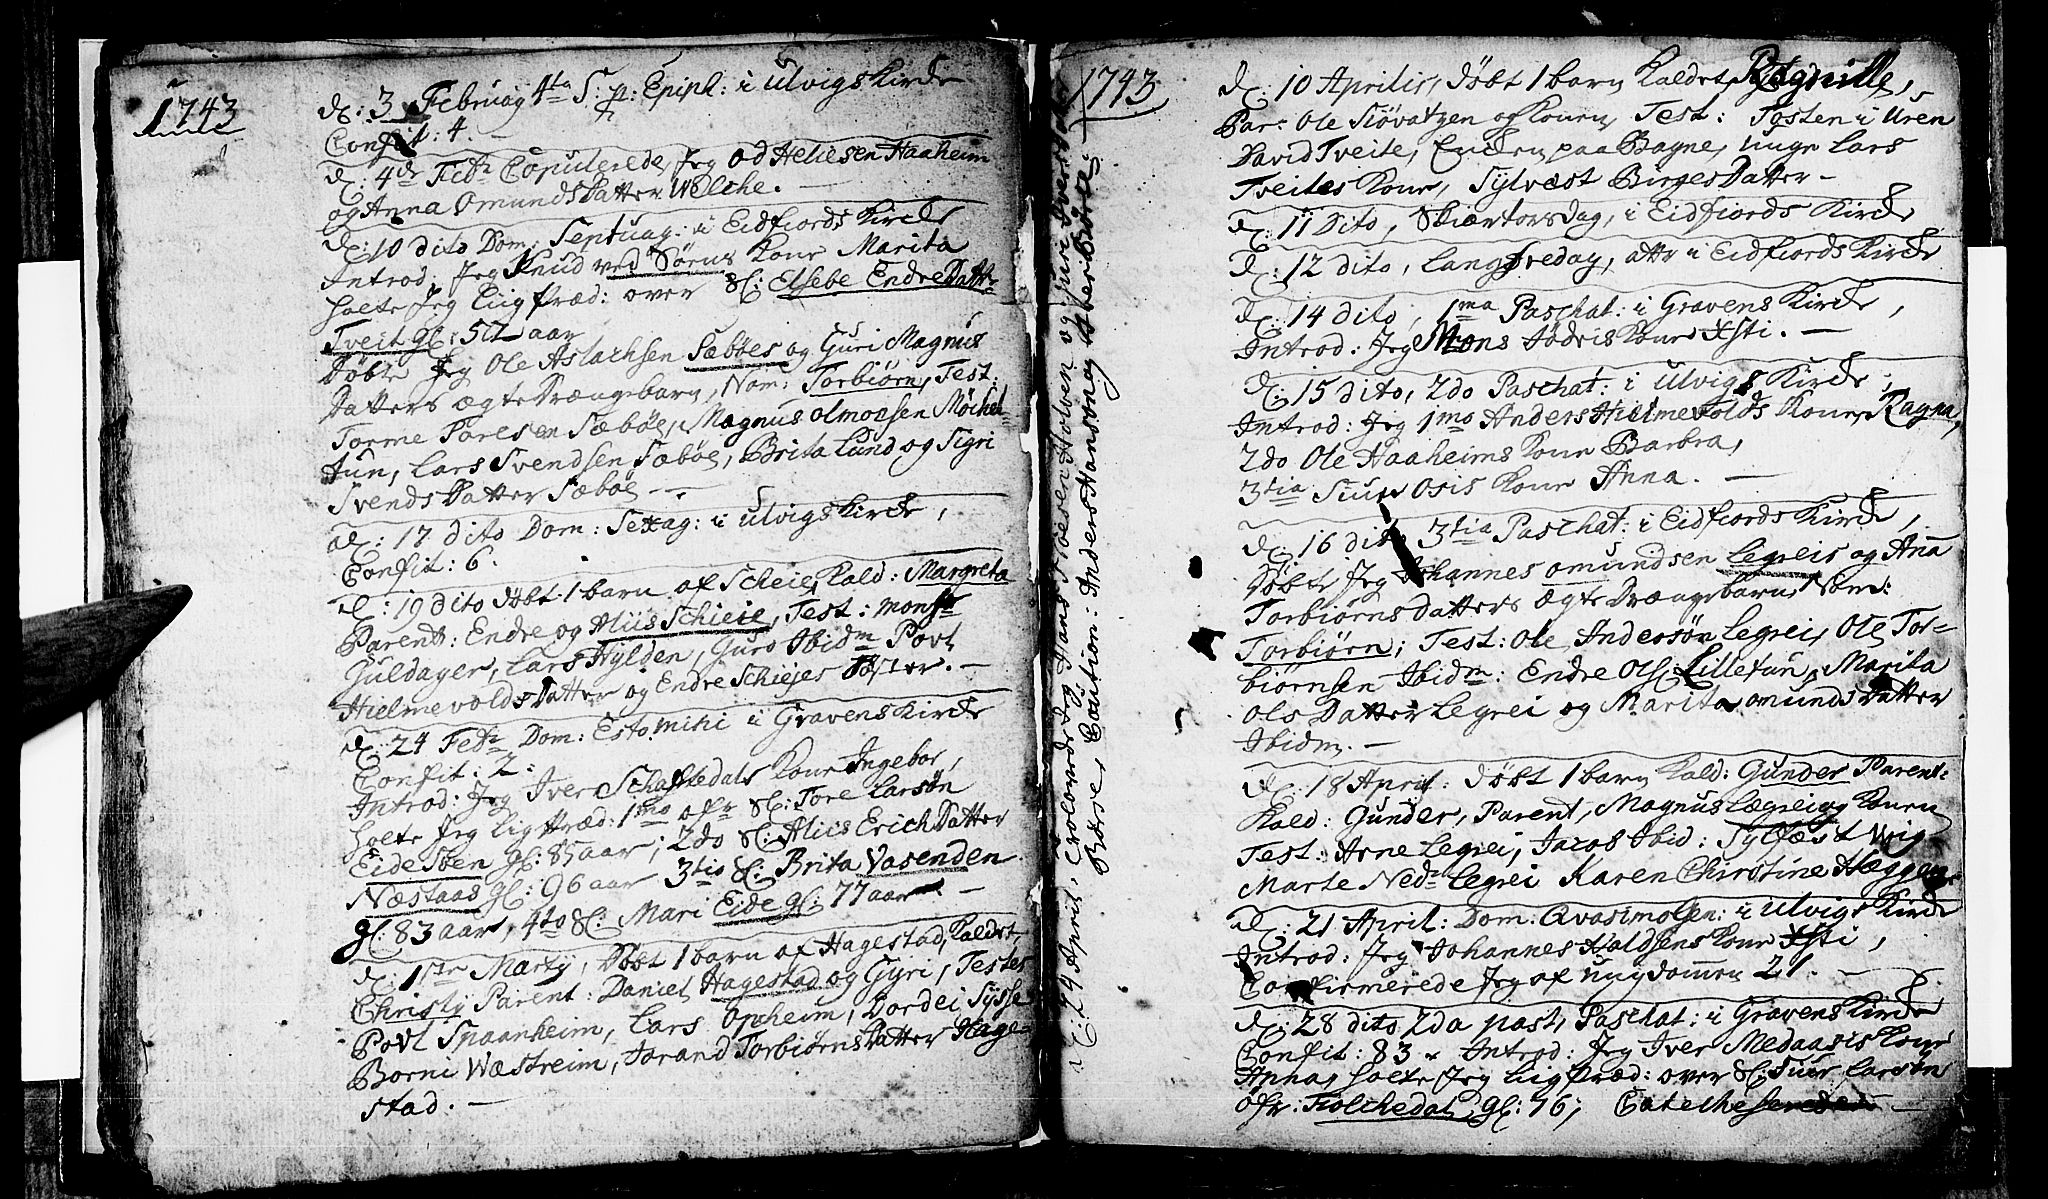 1743
d: 3 Februaÿ 4ta S: p: Epiph: i Ulvigs Kirche
Confit: 4.
d: 4de Febr Copulerede Jeg Od Heliesen Haaheim
og Anna Omunds Datter Welche. —
d: 10 dito Dom: Septuag: i Eidfiords Kirche
Introd: Jeg Knud ved Sørns Kone Marita
holte Jeg Liig Præd: over Sl: Elsebe Endre Dattr
Tveit gl: 52 aar
Døbte Jeg Ole Aslachsen Sæbøes og Guri Magnus
Datters ægte Drængebarn, Nom: Torbiørn, Test:
Torme Pares en Sæbøe, Magnus Olmodsen Møchel-
tun, Lars Svendsen Sæbøe, Brita Lund og Sigri
Svends Datter Sæbøe —
d: 17 dito Dom: Sexag: i Ulvigs Kirche,
Confit: 6.
d: 19 dito døbt 1 barn af Scheie, Kald: Margreta
Parent: Endre og Aliis Schieie, Test: Monsr
Guldager, Lars Hylden, Guro Ibidm Povl
Hielmevolds Datter og Endre Schiejes Søster. —
d: 24 Febr: Dom: Esto mihi i Gravens Kirche
Confit: 2:
Introd: Jeg Iver Schaftedals Kone Ingebor,
holte Jeg Lig Præd: 1mo ofr Sl: Tore Larsøn
Eide Søen gl: 85 aar; 2do Sl: Aliis Erich Datter
Næstaas gl: 96 aar 3tio Sl: Brita Vasenden
gl: 83 aar, 4to Sl: Mari Eide gl: 77 aar —
d: 1ste Martÿ, Døbt 1 barn af Hagestad, Kaldet,
Christÿ Parent: Daniel Hagestad og Gyri, Testes
Povl Spaanheim, Lars Opheim, Dordei Sysse
Borni Wæstreim, Jorand Torbiørns Datter Hage-
stad. —
d: 24 April, trolovede Jeg Hans Hoesen Holven og Guri Ivers Datter
Børre, Caution: Anders Hansen og Iver Børre.
1743
d: 10 Aprilis, døbt 1 barn Kaldet, Ragnille,
Par: Ole Siøvatzen og Konen, Test: Tosten i Uren
David Tveite, Enchen paa Bagne, unge Lars
Tveites Kone, Sylvæst Birges Datter —
d: 11 Dito, Skiærtorsdag, i Eidfiords Kirche
d: 12 dito, Langfredag, atter i Eidfiords Kirche
d: 14 dito, 1ma Paschat: i Gravens Kirche,
Introd: Jeg Mons Jødris Kone Xsti. —
d: 15 dito, 2do Paschat: i Ulvigs Kirche,
Introd: Jeg 1mo Anders Hielmevolds Kone, Ragna,
2do Ole Haaheims Kone Barbra,
3tia Siur Osis Kone Anna. —
d: 16 dito 3tia Paschat: i Eidfiords Kirche,
Døbt Jeg Johannes Omundsen Legreis og Anna
Torbiørns datters ægte Drængebarn, Nom:
Torbiørn; Test: Ole Andersøn Legrei, Ole Tor-
biørnsen Ibidm: Endre Ols: Lilletun, Marita
Ols Datter Legrei og Marita Omunds Datter
Ibidm. —
d: 18 April: døbt 1 barn Kald: Gunder Parent:
Kald: Gunder, Parent, Magnus Lægrei og Konen
Test: Arne Legrei, Jacob Ibid: Sylfæst Wig
Marte Nedr Legrei Karen Chirstine Hæggen
d: 21 April: Dom: Qvasimogen: i Ulvigs Kirche
Introd: Jeg Johannes Haldsens Kone Xsti,
Confirmerede Jeg af Ungdommen 21. —
d: 28 dito 2da post, Paschat: i Gravens Kirche
Confit: 83 Introd: Jeg Iver Medaasis Kone
Anna, holte Jeg Liig Præd: over Sl: Siur Larsøn
ofr: Folchedal, gl: 76; Catechiserede —